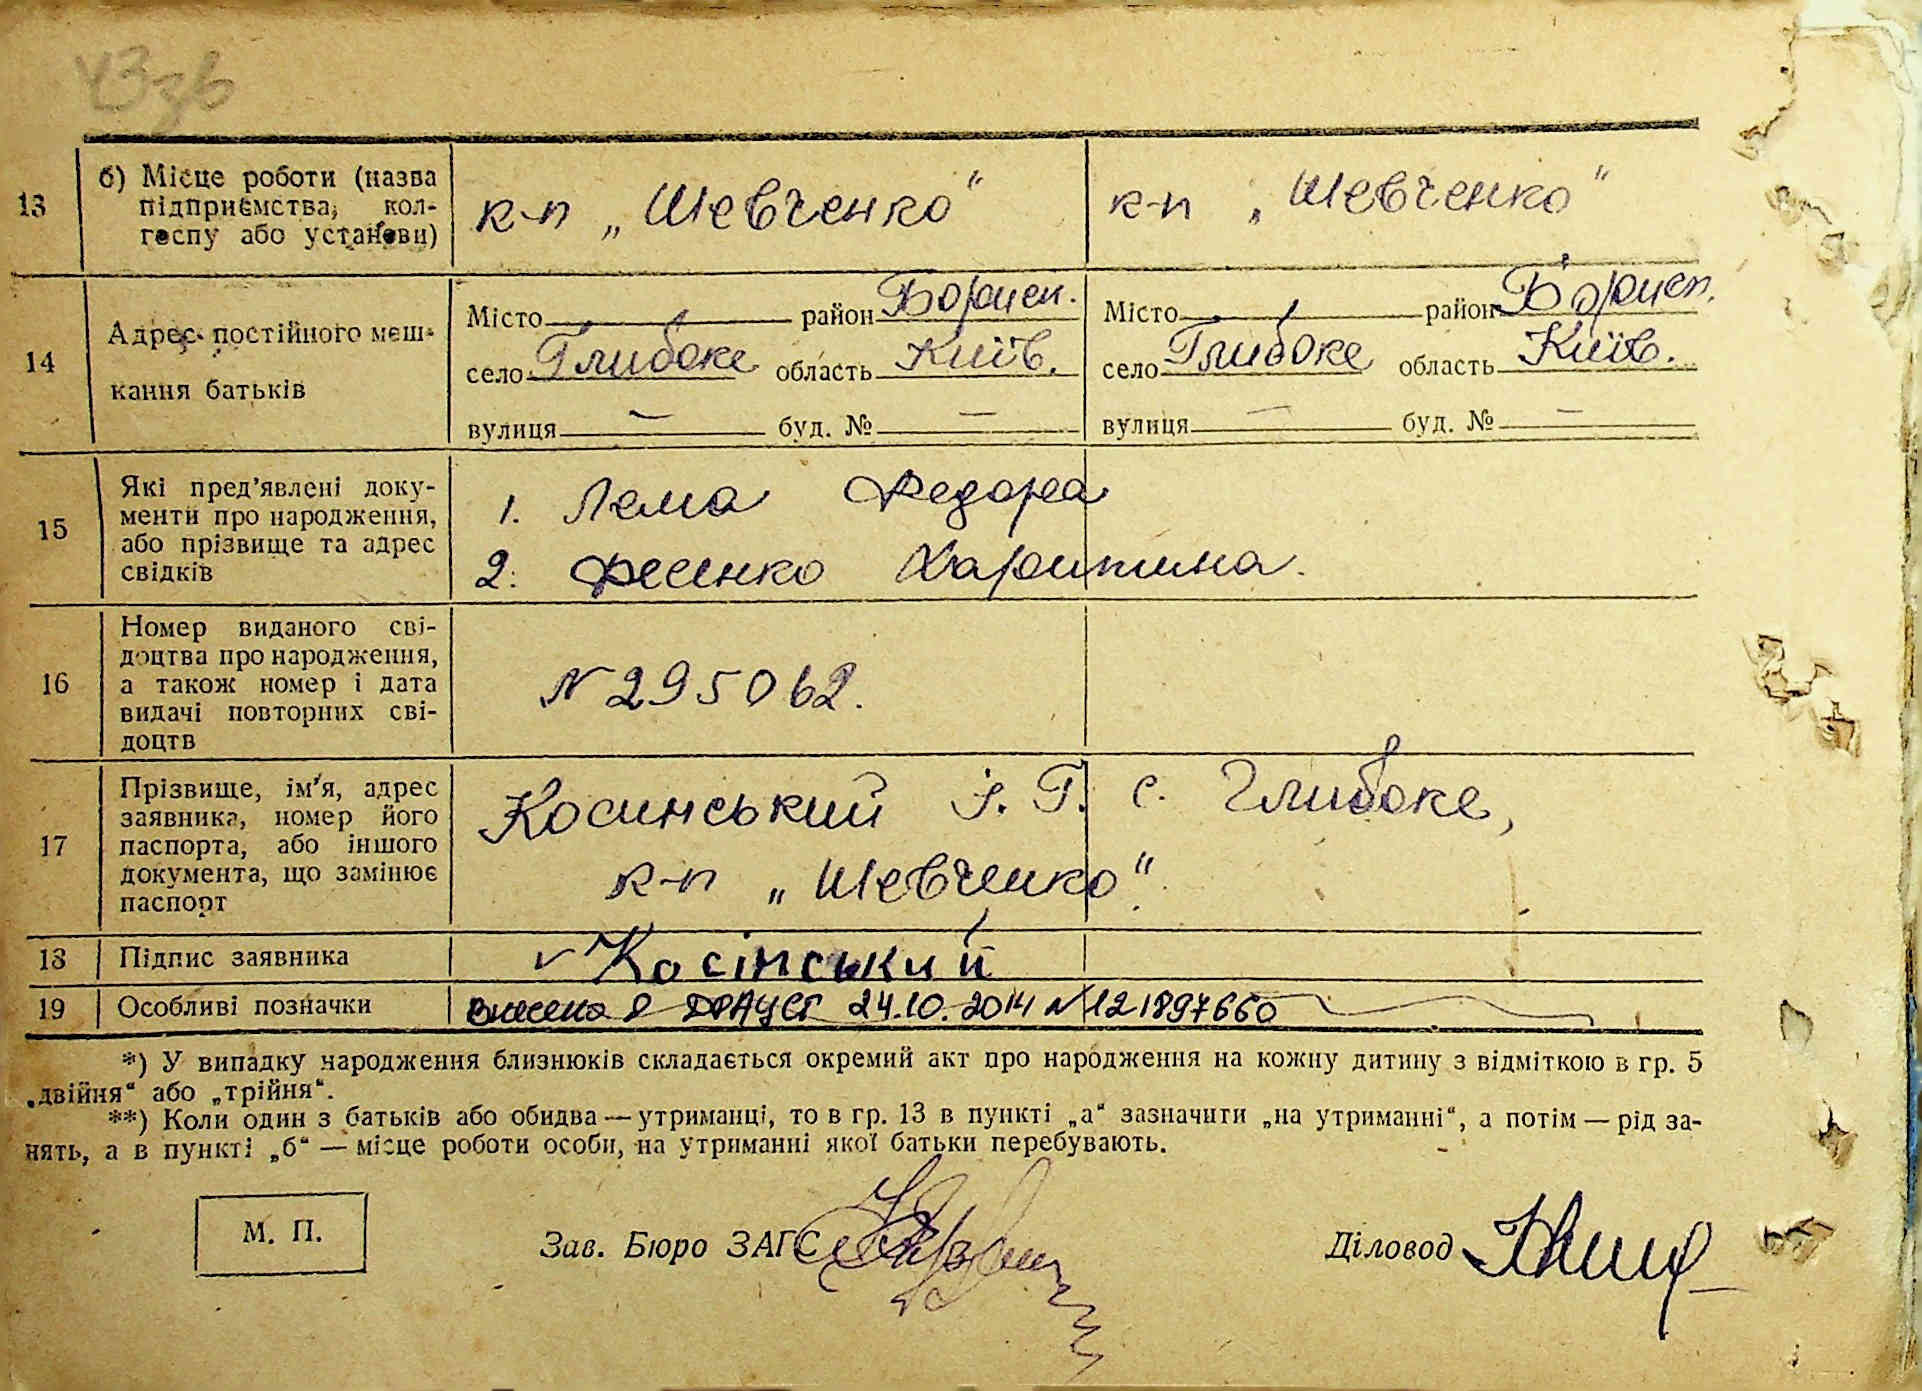 43зв
13 б) Місце роботи (назва підприємства, колгоспу або установи)
к-п „Шевченко“ к-п „Шевченко“
14 Адрес постійного мешкання батьків
Місто район Борисп. Місто район Борисп.
село Глибоке область Київ. село Глибоке область Київ.
вулиця — буд. № — вулиця — буд. № —
15 Які пред’явлені доку-
менти про народження,
або прізвище та адрес
свідків
1. Лема Федора
2. Фесенко Харитина.
16 Номер виданого сві-
доцтва про народження,
а також номер і дата
видачі повторних сві-
доцтв
N 295062.
17 Прізвище, ім’я, адрес
заявника, номер його
паспорта, або іншого
документа, що замінює
паспорт
Косинський І. Г. с. Глибоке,
к-п „Шевченко“.
18 Підпис заявника
Косінський
19 Особливі позначки
Внесено в ДРАЦСГ 24.10.2014 N 121897660
*) У випадку народження близнюків складається окремий акт про народження на кожну дитину з відміткою в гр. 5
„двійня“ або „трійня“.
**) Коли один з батьків або обидва — утриманці, то в гр. 13 в пункті „а“ зазначити „на утриманні“, а потім — рід за-
нять, а в пункті „б“ — місце роботи особи, на утриманні якої батьки перебувають.
М. П.
Зав. Бюро ЗАГС
Діловод